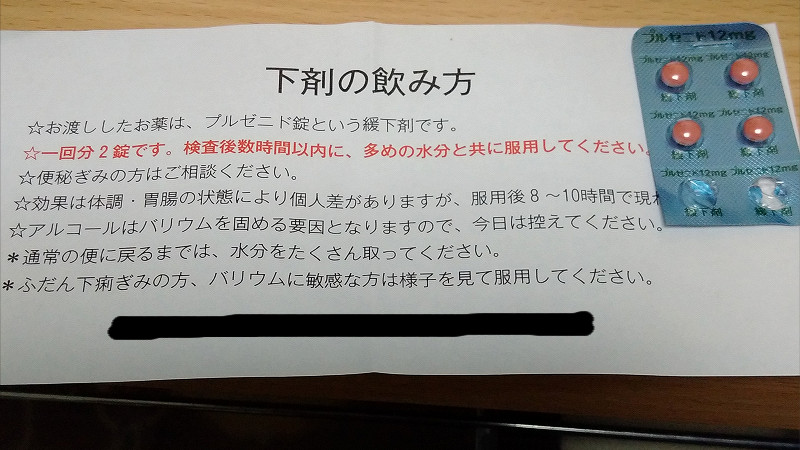 下剤の飲み方
☆お渡ししたお薬は、プルゼニド錠という緩下剤です。
☆一回分2錠です。検査後数時間以内に、多めの水分と共に服用してください。
☆便秘ぎみの方はご相談ください。
☆効果は体調・胃腸の状態により個人差がありますが、服用後8~10時間で現れ
☆アルコールはバリウムを固める要因となりますので、今日は控えてください。
*通常の便に戻るまでは、水分をたくさん取ってください。
*ふだん下痢ぎみの方、バリウムに敏感な方は様子を見て服用してください。
プルゼニド12mg
プルゼニド12mg プルゼニド12mg
緩下剤 緩下剤
プルゼニド12mg プルゼニド12mg
緩下剤 緩下剤
プルゼニド12mg プルゼニド12mg
緩下剤 緩下剤